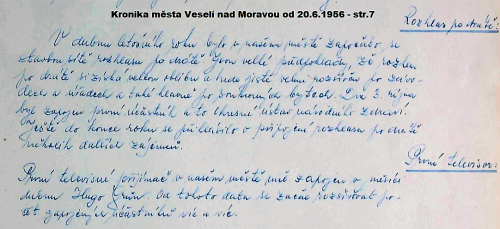 Kronika města Veselí nad Moravou od 20.6.1956 - str.7
Rozhlas po drátě:
V dubnu letošního roku bylo v našem městě započato se
stavbou sítě rozhlasu po drátě. Jsou velké předpoklady, že rozhlas
po drátě si získá velkou oblibu a bude jistě velmi rozšířen po závo-
dech a úřadech a také hlavně po soukromých bytech. Dne 3. října
byl zapojen první účastník a to Okresní ústav národního zdraví.
Ještě do konce roku se přihlásilo o připojení rozhlasu po drátě
několik dalších zájemců.
První televisor:
První televisní přijímač v našem městě měl zapojen v měsíci
dubnu Hugo Grün. Od tohoto data se začne rozšiřovat po-
čet zapojených účastníků víc a víc.